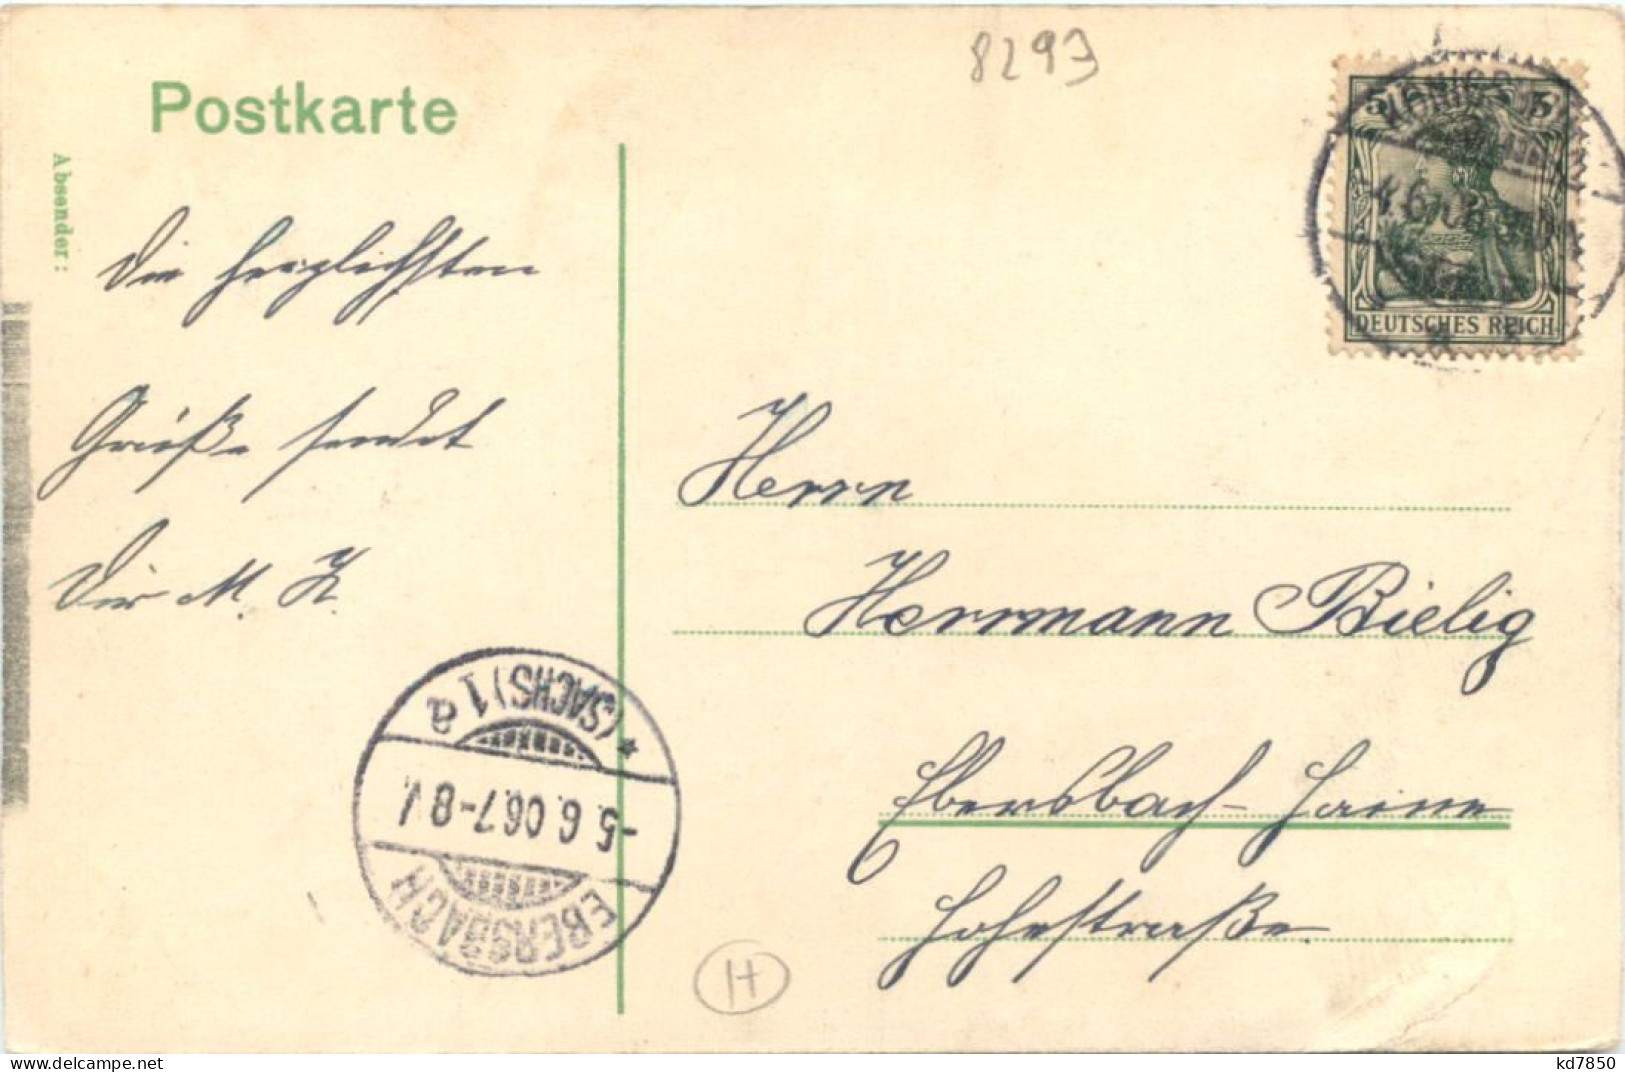 8293
Postkarte
Absender:
5 5
4.6.06
DEUTSCHES REICH
Die herzlichsten
Grüße sendet
Dir M. K.
Herrn
Herrmann Bielig
Ebersbach-Haine
Hohestraße.
* (SACHS) 1 a
-5.6.06.7-8V.
EBERSBACH
H
www.delcampe.net
kd7850